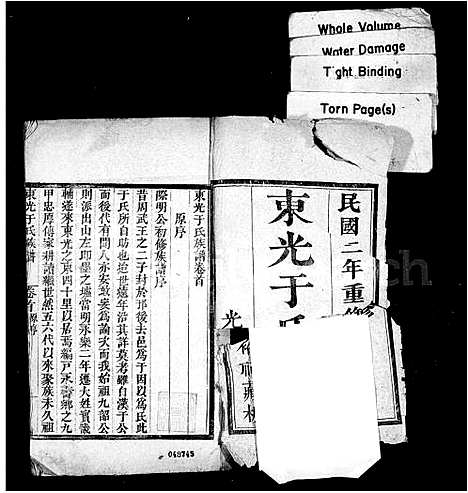 Whole Volume
Water Damage
Tight Binding
Torn Page(s)
民國二年重修
東光于氏
光
東光于氏族譜卷首
原序
際明公初修族譜序
昔周武王之二子封於邘後去邑為于因以為氏此
于氏所自助也迨世遠年沿其詳莫考雖自漢于公
而後代有聞人亦安敢妄為論次而我始祖九韶公
則派出山左即墨之墟當明永樂二年遷大姓實畿
輔遂來東光之東四十里以居焉編戶永壽鄉之九
甲忠厚傳家耕讀繼世然五六代以來聚族未久祖
東光于氏族譜
卷首原序
048745